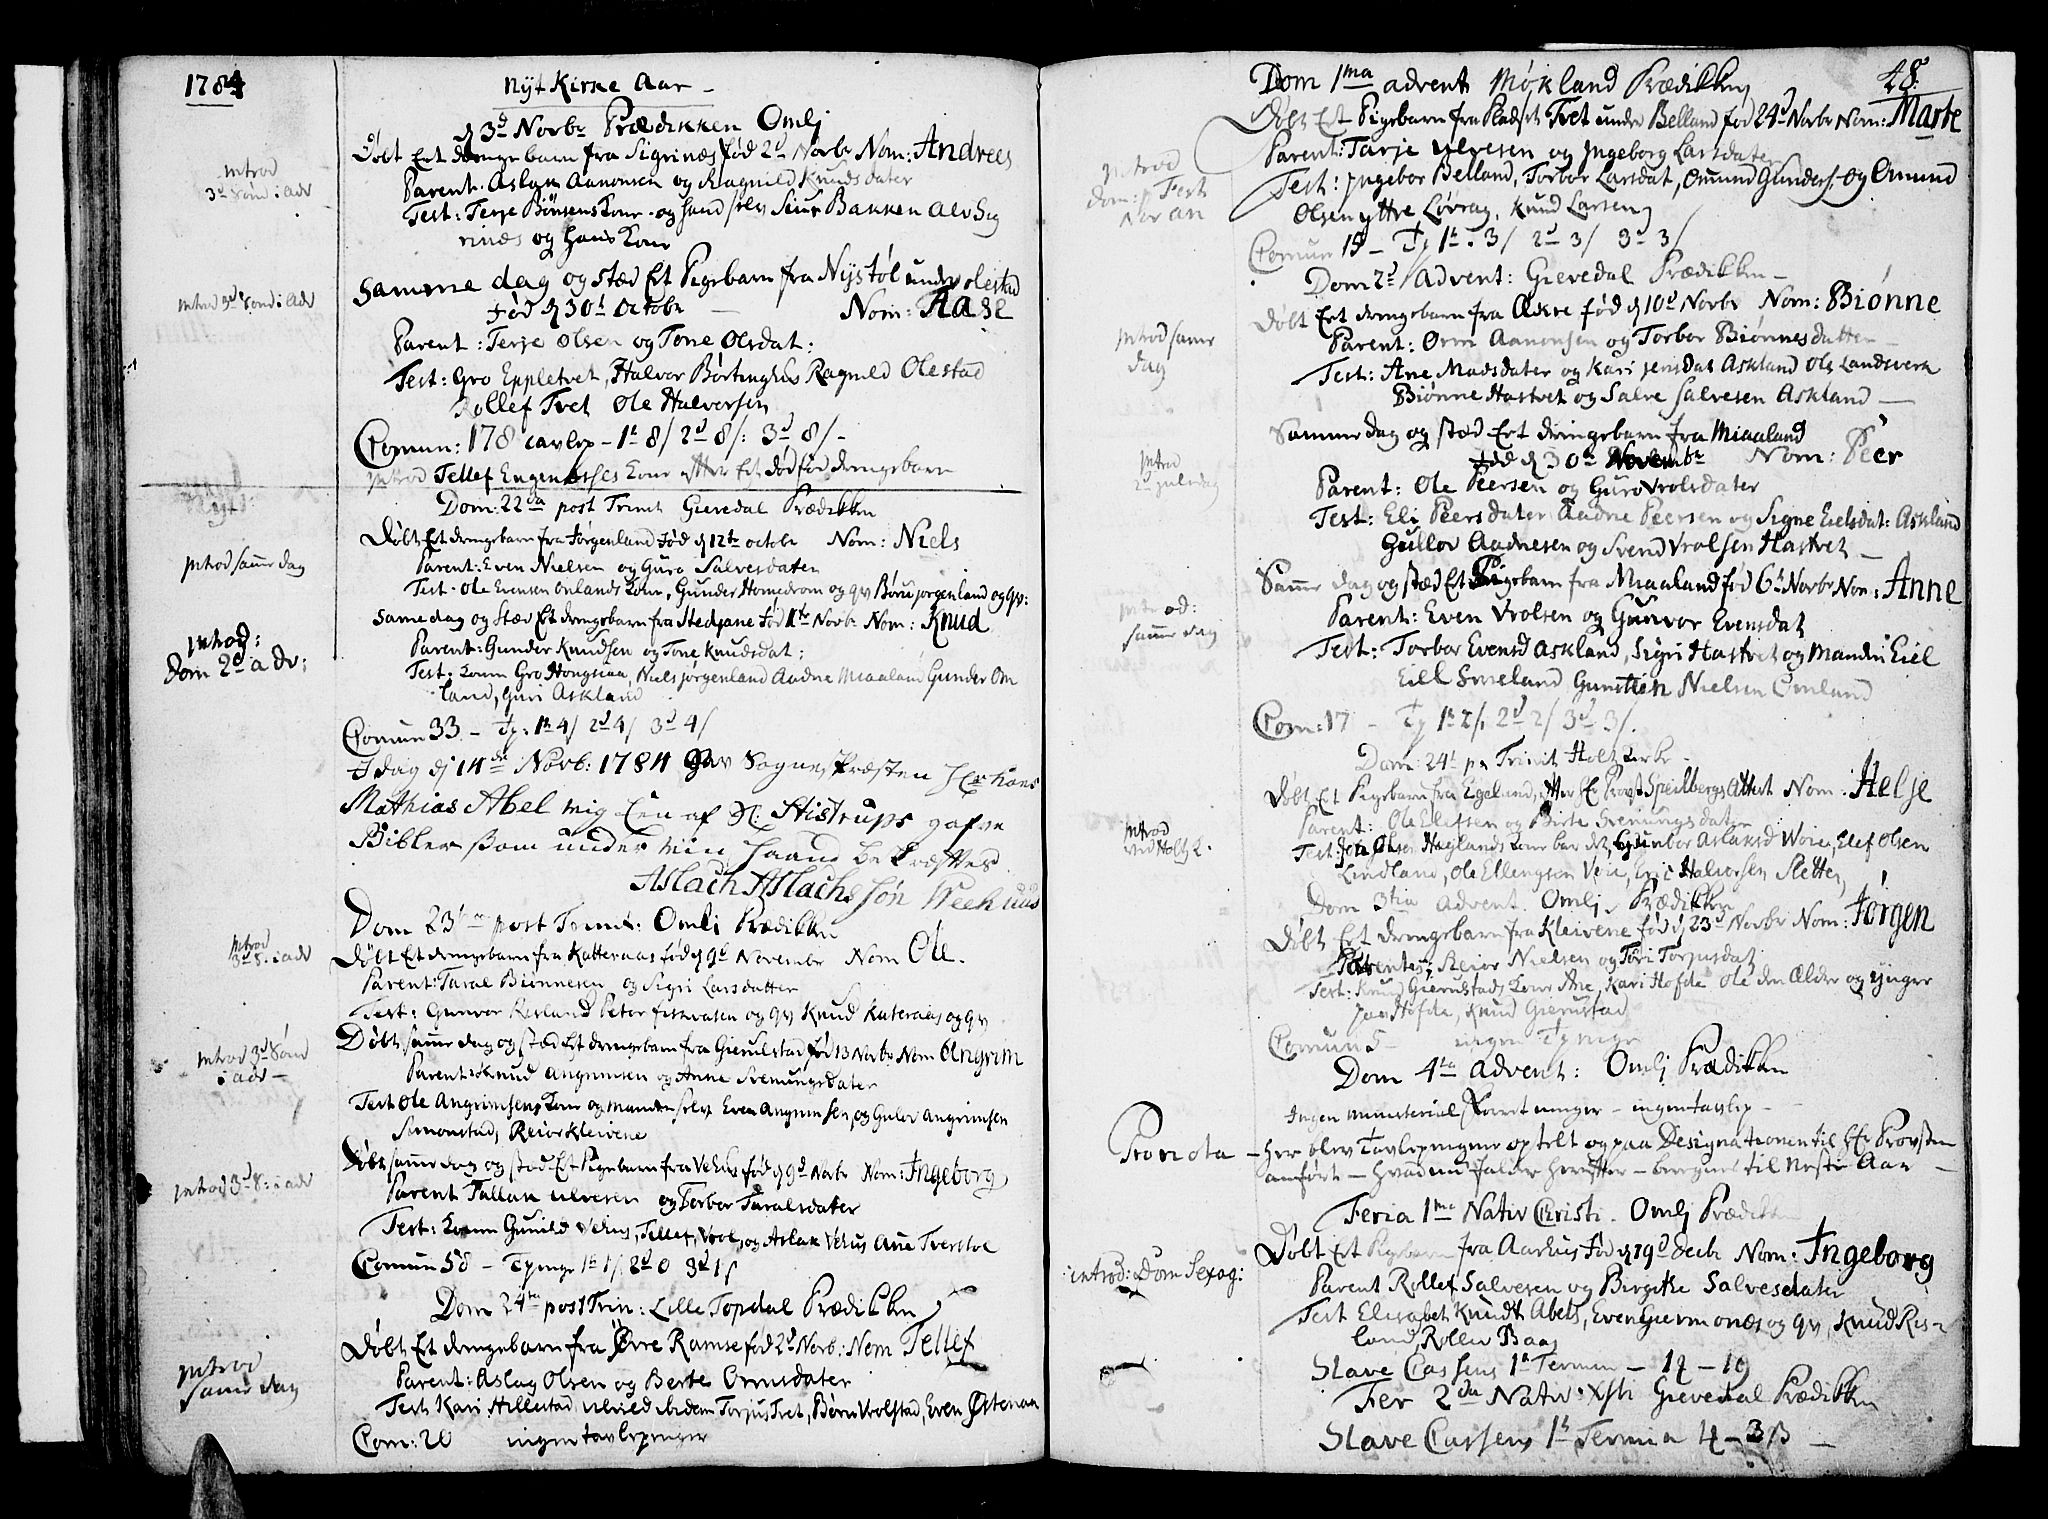 1784
Nyt Kirke Aar
d 3d Novbr Prædikken Omlj
introd
3d Sønd: i adv
Døbt Et drengebarn fra Sigrinæs fød 2d Novbr Nom: Andrees
Parent. Aslak Aanonsen og Ragnild Knudsdater
Test: Terje Bønsens Kone og hand selv Siur Bakken Alv Sig
rinæs og hans Kone
introd 3d Sønd: i Adv
Samme dag og stæd Et Pigebarn fra Nystøl under olestad
Fød d 30d October Nom: Aase
Parent: Terje Olsen og Tone Olsdat:
Test: Gro Eppletvet, Halvor Børtinghus Ragnild Olestad
Rollef Tvet Ole Halvorsen
Comun: 178 tavlep – 1t 8/ 2d 8/: 3d 8/–
introd Tellef Kone efter Et død fød drengebarn
Dom: 22da post Trinit Gievedal Prædikken
introd samme dag
Døbt Et drengebarn fra Jørgenland Fød d 12te octobr Nom: Niels
Parent: Even Nielsen og Guro Salvesdater
Test. Ole Evensen Omlands Kone, Gunder Homedrom og qv Børu jørgenland og qv:
introd:
Dom 2d adv:
Same dag og Stæd Et drengebarn fra Stedjane Fød 1te Novbr Nom: Knud
Parent: Gunder Knudsen og Tone Knudsdat:
Test. Konen Gro Hongsiaa, Niels jørgenland Aadne Miaaland Gunder Om
land, Guri Askland
Comun 33 – Tj: 1t 4/ 2d 4/ 3d 4/
I dag d 14de Novb: 1784 Gav Sogne Præsten Hr Hans
Mathias Abel mig Een af H: Stistrups gafne
Bibler som under min Haand bekræftes
Aslach Aslachssøn Weehuus
Dom 23 post Trinit: Omli Prædikken
introd
3d S: i adv
Døbt Et drengebarn fra Katteraas fød d 9d Novembr Nom Ole.
Parent: Taral Biønnesen og Sigri Larsdatter
Test: Gunvor Risland Peter og qv Knud kateraas og qv
introd 3d Sønd
i adv –
Døbt samme dag og stæd Et drengebarn fra Gierulstad fød 13 Novbr Nom Angrim
Parent: Knud Angrimsen og Anne Svenungsdater
Test Ole Angrimsens Kone og manden selv Even Angrimsen og Gulov Angrimsen
Simonstad, Reior Kleivene
introd 3d S: i adv
Døbt samme dag og stæd Et Pigebarn fra Vehus fød d 9d Novbr Nom: Ingeborg
Parent Tallak ulvesen og Torbor Taralsdater
Test: Konen Gunild Vehus, Tellef, Vrol, og Aslak Vehus Anne Tverstøl
Comun 58 – Tpenge 1t 1/ 2d 0 3d 1/
Dom 24de post Trin: Lille Topdal Prædikken
introd
samme dag
Døbt Et drengebarn fra Øvre Ramse fød 2d Novb: Nom Tellef
Parent: Aslag Olsen og Berte Ormsdater
Test Kari Hillestad ibidem Torjus Tvet, Børu Vrolstad, Even Østenaa
Com: 20 ingen tavlepenger
Dom 1ma advent Møkland Prædikken
48.
introd
Dom: p Fest
Nov an
Døbt Et Pigebarn fra Pladset Tvet under Belland fød 24d Novbr Nom: Marte
Parent: Tarje ulvesen og Ingeborg Larsdater
Test: Ingebor Belland, Torbor Larsdat, Omund Gunders: og Omund
Olsen yttre Løvrag, Knud Larsen
Comun 15 – Tj 1t. 3/ 2d 3/ 3d 3/
Dom 2d Advent: Gievedal Prædikken –
introd samme
dag
Døbt Et drengebarn fra Askre fød d 10d Novbr Nom: Biønne
Parent: Orm Aanonsen og Torbor Biønnesdatter –
Test: Ane Madsdater og Kari jensdat Askland Ole Landsverk
Biønne Hastvet og Salve Salvesen Askland –
introd
2d juledag
Samme dag og stæd Et drengebarn fra Miaaland
Fød d 30te Novembr Nom: Peer
Parent: Ole Peersen og Guro Vrolsdater
Test: Eli Peersdater Aadne Peersen og Signe Eielsdat: Askland
Gullov Aadnesen og Svend Vrolsen Hastvet –
introd:
samme dag
Samme dag og stæd Et Pigebarn fra Miaaland fød 6t Novbr Nom: Anne
Parent: Even Vrolsen og Gunvor Evensdat
Test: Torbor Evensd Askland, Sigri Hastvet og manden Eiel
Eiel Smeland Gunsten Nielsen Omland
Com: 17 – Tj 1t 2/ 2d 2/ 3d 3/.
Dom 24t p. Trinit Holt Kirke –
introd
ved Holt K.
Døbt Et Pigebarn fra Egeland, efter Hr Provst Speilbergs Attest Nom: Helje
Parent: Ole Elefsen og Birte Svenungsdater
Test: Olsen Høglands Kone bar det, Gunbor Aslaksd Woie, Elef Olsen
Lindland, Ole Ellengsen Veie, Eric Halvorsen Sletten
Dom 3tia advent. Omlj Prædikken
Døbt Et drengebarn fra Kleivene fød d 23d Novbr Nom: Jørgen
Parenter: Reior Nielsen og Tori Torjusdat
Test: Knud Gierustads Kone Ane, Kari Hofde Ole den Ælder og ynger
Hofde, Knud Gierustad
Comun 5 – ingen Tpenge
Dom 4ta Advent: Omlj Prædikken
Ingen ministerial forretninger – ingen tavlep –
Pronota – Her blev Tavlepengene optelt og paa Designationen til Hr Provsten
anført – hvad nu falder herefter – beregnes til neste Aar –
Feria 1ma Nativ Christi. Omlj Prædikken
introd: Dom Sexag:
Døbt Et Pigebarn fra Aarhus Fød d 19d Decbr Nom: Ingeborg
Parent Rollef Salvesen og Birgitte Salvesdater
Test Elisabet Knudt Abels, Even Giermonæs og qv, Knud Ris-
land, Rollev Baas
Slave Cassens 1t Termin – 1t – 19
Fer 2da Nativ Xsti Gievedal Prædikken
Slave Cassens 1t Termin 4 – 3 ß –